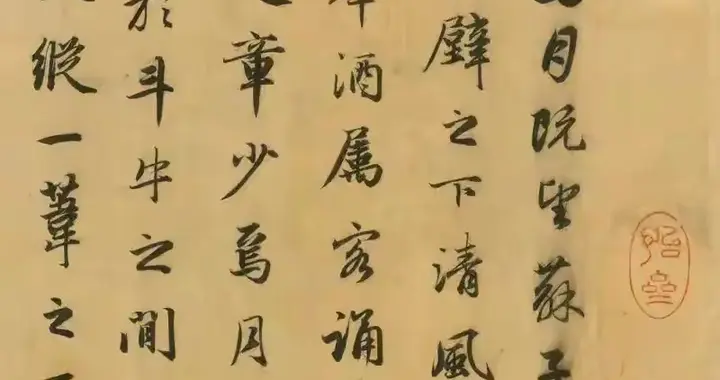 月既望蘇子
壁之下清風
酒属客誦
章少焉月
於斗牛之間
縱一葦之